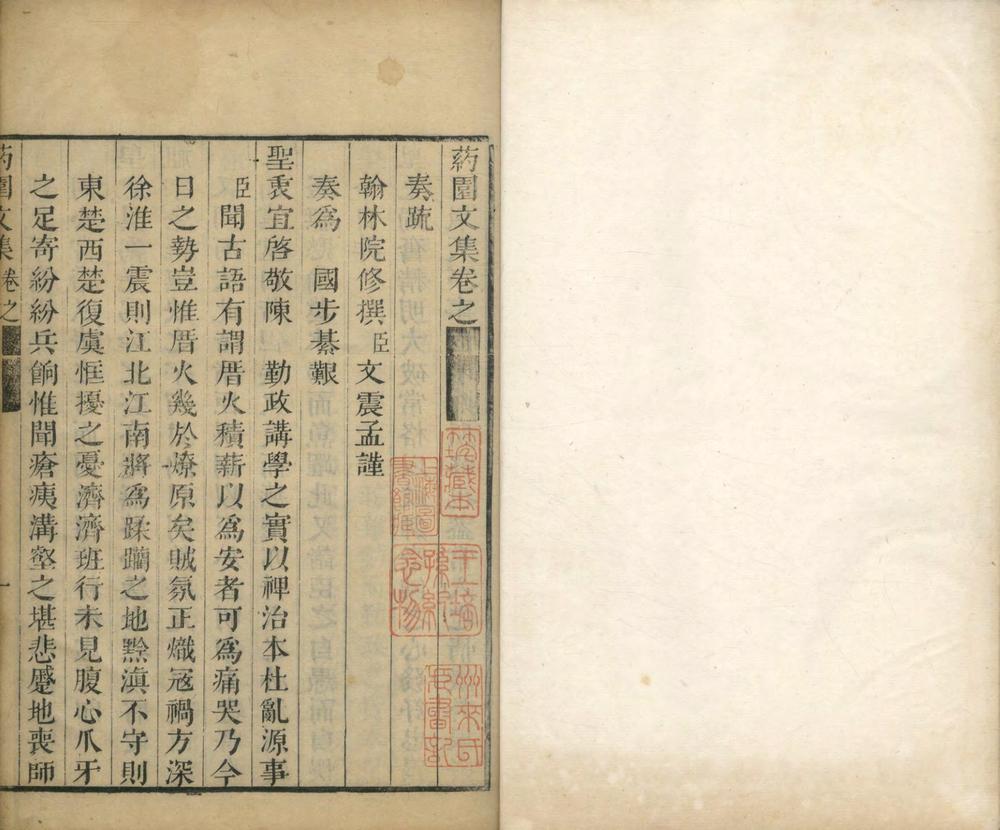 葯園文集卷之
奏疏
翰林院修撰臣文震孟謹
奏爲 國步綦艱
聖衷宜啓敬陳 勤政講學之實以裨治本杜亂源事
臣聞古語有謂厝火積薪以爲安者可爲痛哭乃今
日之勢豈惟厝火幾於燎原矣賊氛正熾冦禍方深
徐淮一震則江北江南將爲蹂躪之地黔滇不守則
東楚西楚復虞恇擾之憂濟濟班行未見腹心爪牙
之足寄紛紛兵餉惟聞瘡痍溝壑之堪悲蹙地喪師
葯園文集 卷之
一
筑藏本
上海圖書館藏